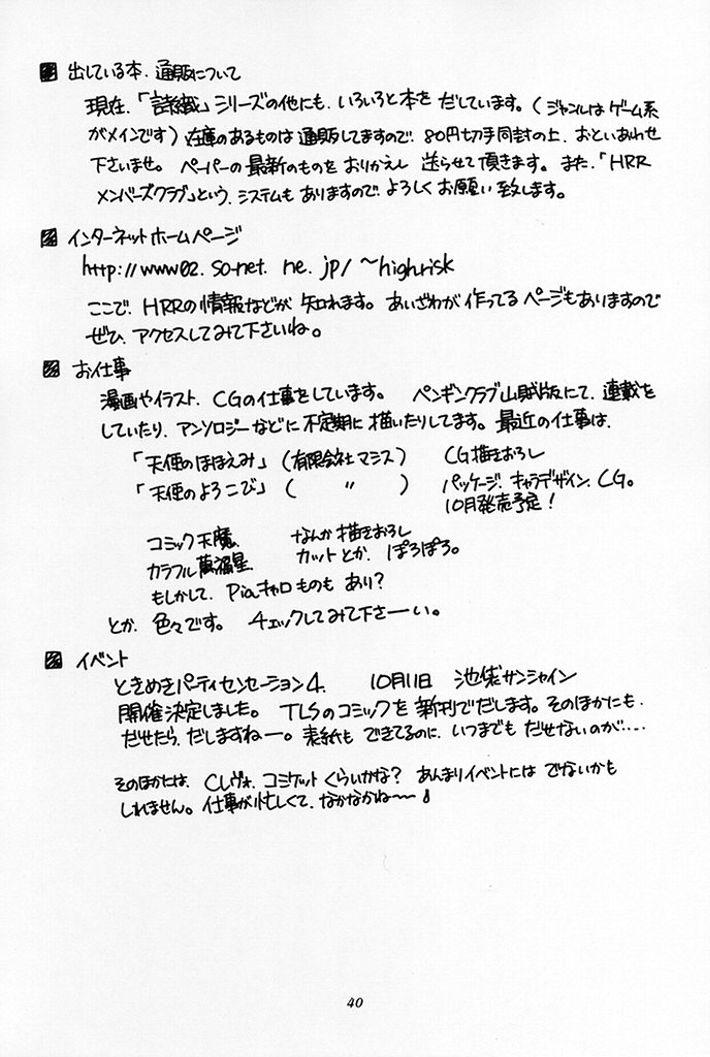 出している本、通販について
現在、「詩織」シリーズの他にも、いろいろと本を だしています。(ジャンルは ゲーム系
がメインです) 在庫のあるものは 通販してますので、80円切手同封の上、おといあわせ
下さいませ。 ペーパーの 最新のものを おりかえし 送らせて 頂きます。 また、「HRR
メンバーズクラブ」という、システムも ありますので、よろしく お願い 致します。
インターネット ホームページ
http://www02.so-net.ne.jp/~highrisk
ここで、HRRの情報などが 知れます。 あいざわが 作ってる ページも ありますので
ぜひ、アクセスしてみて下さいね。
お仕事
漫画や イラスト、CGの仕事をしています。 ペンギンクラブ山賊版にて、連載を
していたり、アンソロジーなどに 不定期に 描いたりしてます。 最近の仕事は、
「天使のほほえみ」 (有限会社マシス) CG描きおろし
「天使のよろこび」 ( 〃 ) パッケージ、キャラデザイン、CG。
10月発売予定!
コミック天魔、 なんか描きおろし
カラフル萬福星、 カットとか、ぽろぽろ。
もしかして、Piaキャロものも あり?
とか、色々です。 チェックしてみて下さーい。
イベント
ときめきパーティセンセーション4、 10月11日 池袋サンシャイン
開催決定しました。 TLSのコミックを 新刊でだします。 そのほかにも、
だせたら、だしますねー。 表紙も できてるのに、いつまでも だせないのが‥‥
そのほかには、Cレヴォ、コミケット くらいかな? あんまりイベントには でないかも
しれません。 仕事が忙しくて、なかなかね〜〜♪
40